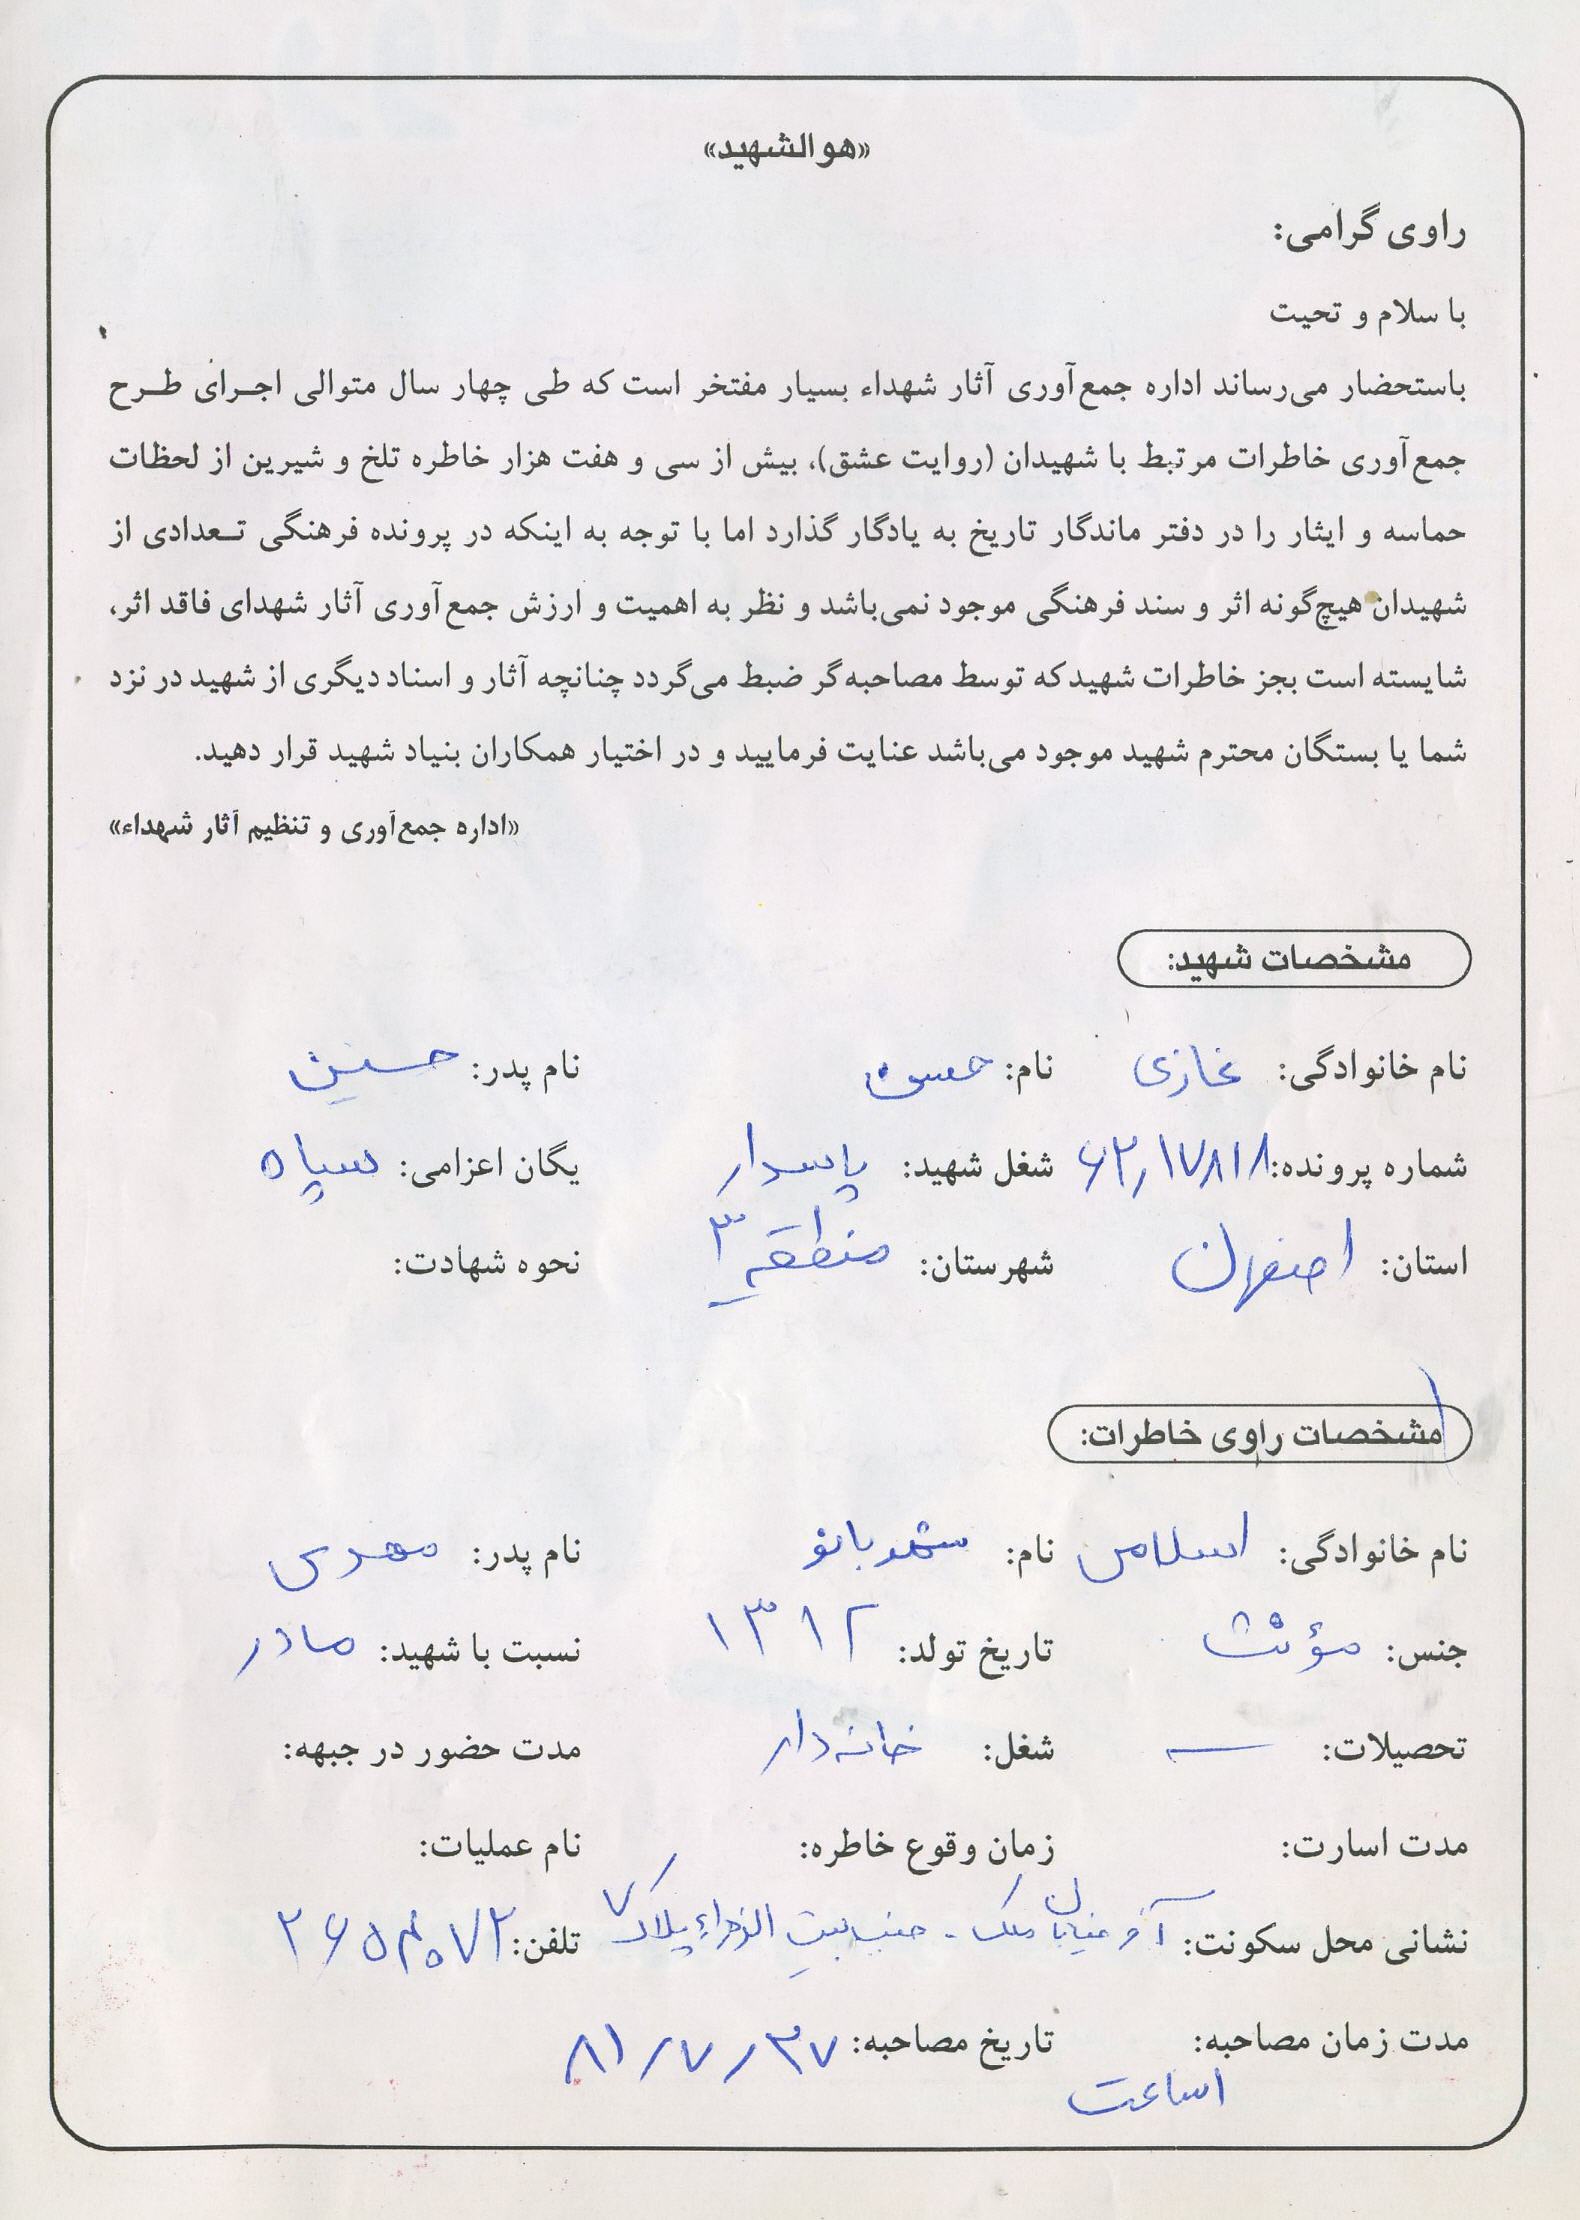 «هوالشهید»
راوی گرامی:
با سلام و تحیت
باستحضار می‌رساند اداره جمع‌آوری آثار شهداء بسیار مفتخر است که طی چهار سال متوالی اجرای طرح
جمع‌آوری خاطرات مرتبط با شهیدان (روایت عشق)، بیش از سی و هفت هزار خاطره تلخ و شیرین از لحظات
حماسه و ایثار را در دفتر ماندگار تاریخ به یادگار گذارد اما با توجه به اینکه در پرونده فرهنگی تعدادی از
شهیدان هیچ‌گونه اثر و سند فرهنگی موجود نمی‌باشد و نظر به اهمیت و ارزش جمع‌آوری آثار شهدای فاقد اثر،
شایسته است بجز خاطرات شهید که توسط مصاحبه‌گر ضبط می‌گردد چنانچه آثار و اسناد دیگری از شهید در نزد
شما یا بستگان محترم شهید موجود می‌باشد عنایت فرمایید و در اختیار همکاران بنیاد شهید قرار دهید.
«اداره جمع‌آوری و تنظیم آثار شهداء»
مشخصات شهید:
نام خانوادگی: غازی نام: حسن نام پدر: حسین
شماره پرونده: ۶۲٫۱۷۸۱۸ شغل شهید: پاسدار یگان اعزامی: سپاه
استان: اصفهان شهرستان: منطقه ۳ نحوه شهادت:
مشخصات راوی خاطرات:
نام خانوادگی: اسلامی نام: شهربانو نام پدر: مهدی
جنس: مؤنث تاریخ تولد: ۱۳۱۲ نسبت با شهید: مادر
تحصیلات: — شغل: خانه‌دار مدت حضور در جبهه:
مدت اسارت: زمان وقوع خاطره: نام عملیات:
نشانی محل سکونت: آخر خیابان ملک - جنب بیت الزهراء پلاک ۷ تلفن: ۲۶۵۴۰۷۲
مدت زمان مصاحبه: تاریخ مصاحبه: ۸۱/۷/۲۷
۱ ساعت